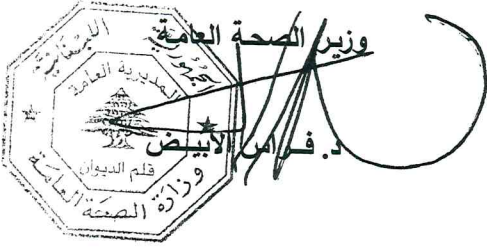 وزير الصحة العامة
د. فراس الأبيض
الجمهورية اللبنانية
المديرية العامة
قلم الديوان
وزارة الصحة العامة